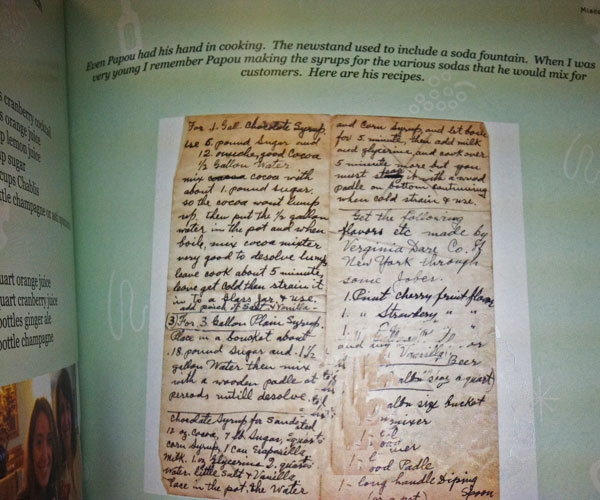 Misce
Even Papou had his hand in cooking. The newstand used to include a soda fountain. When I was
very young I remember Papou making the syrups for the various sodas that he would mix for
customers. Here are his recipes.
s cranberry cocktail
s orange juice
p lemon juice
p sugar
cups Chablis
tle champagne or
uart orange juice
uart cranberry juice
ottles ginger ale
ottle champagne
For 1. Gal. Chocolate Syrup.
use 5. pound Sugar and
12. good Cocoa
1/2 Gallon Water
mix cocoa with
about 1. pound sugar.
so the cocoa wont lump
up, then put the 1/2 gallon
water in the pot and when
boils, mix cocoa mixter
very good to desolve lumps
leave cook about 5 minute,
leave get cold then strain it
in To a glass Jar. & use.
add pinch of Salt & Vanilla
3 For 3. Gallon Plain Syrup.
Place in a boucket about
18. pound Sugar and. 1 1/2
gallon Water then mix
with a wooden padle at
pereods untill desolve.
chocolate Syrup for Sandsted
12 oz. Cocoa, 7 lb. Sugar, 2 quarts
corn Syrup, 1 Can Evaporated
Milk. 1 oz Glycerina 2. quarts
Water. little Salt & Vanilla
Place in the pot, the Water
and Corn Syrup, and let boil
for 5. minute, then add milk
and glycerine, and cook over
5 minute more but you
must it with a wood
padle on bottom continuing
when cold strain & use.
Get the following
flavors etc made by
Verginia Dare Co. of
New York through
some Jober.
1. Pint cherry fruit flavor
1. " Strawbery " "
1. "
and
Vanilla
Beer
quart
size bucket
mixer
1.
1.
1- ood Padle
1- long handle Diping
Spoon